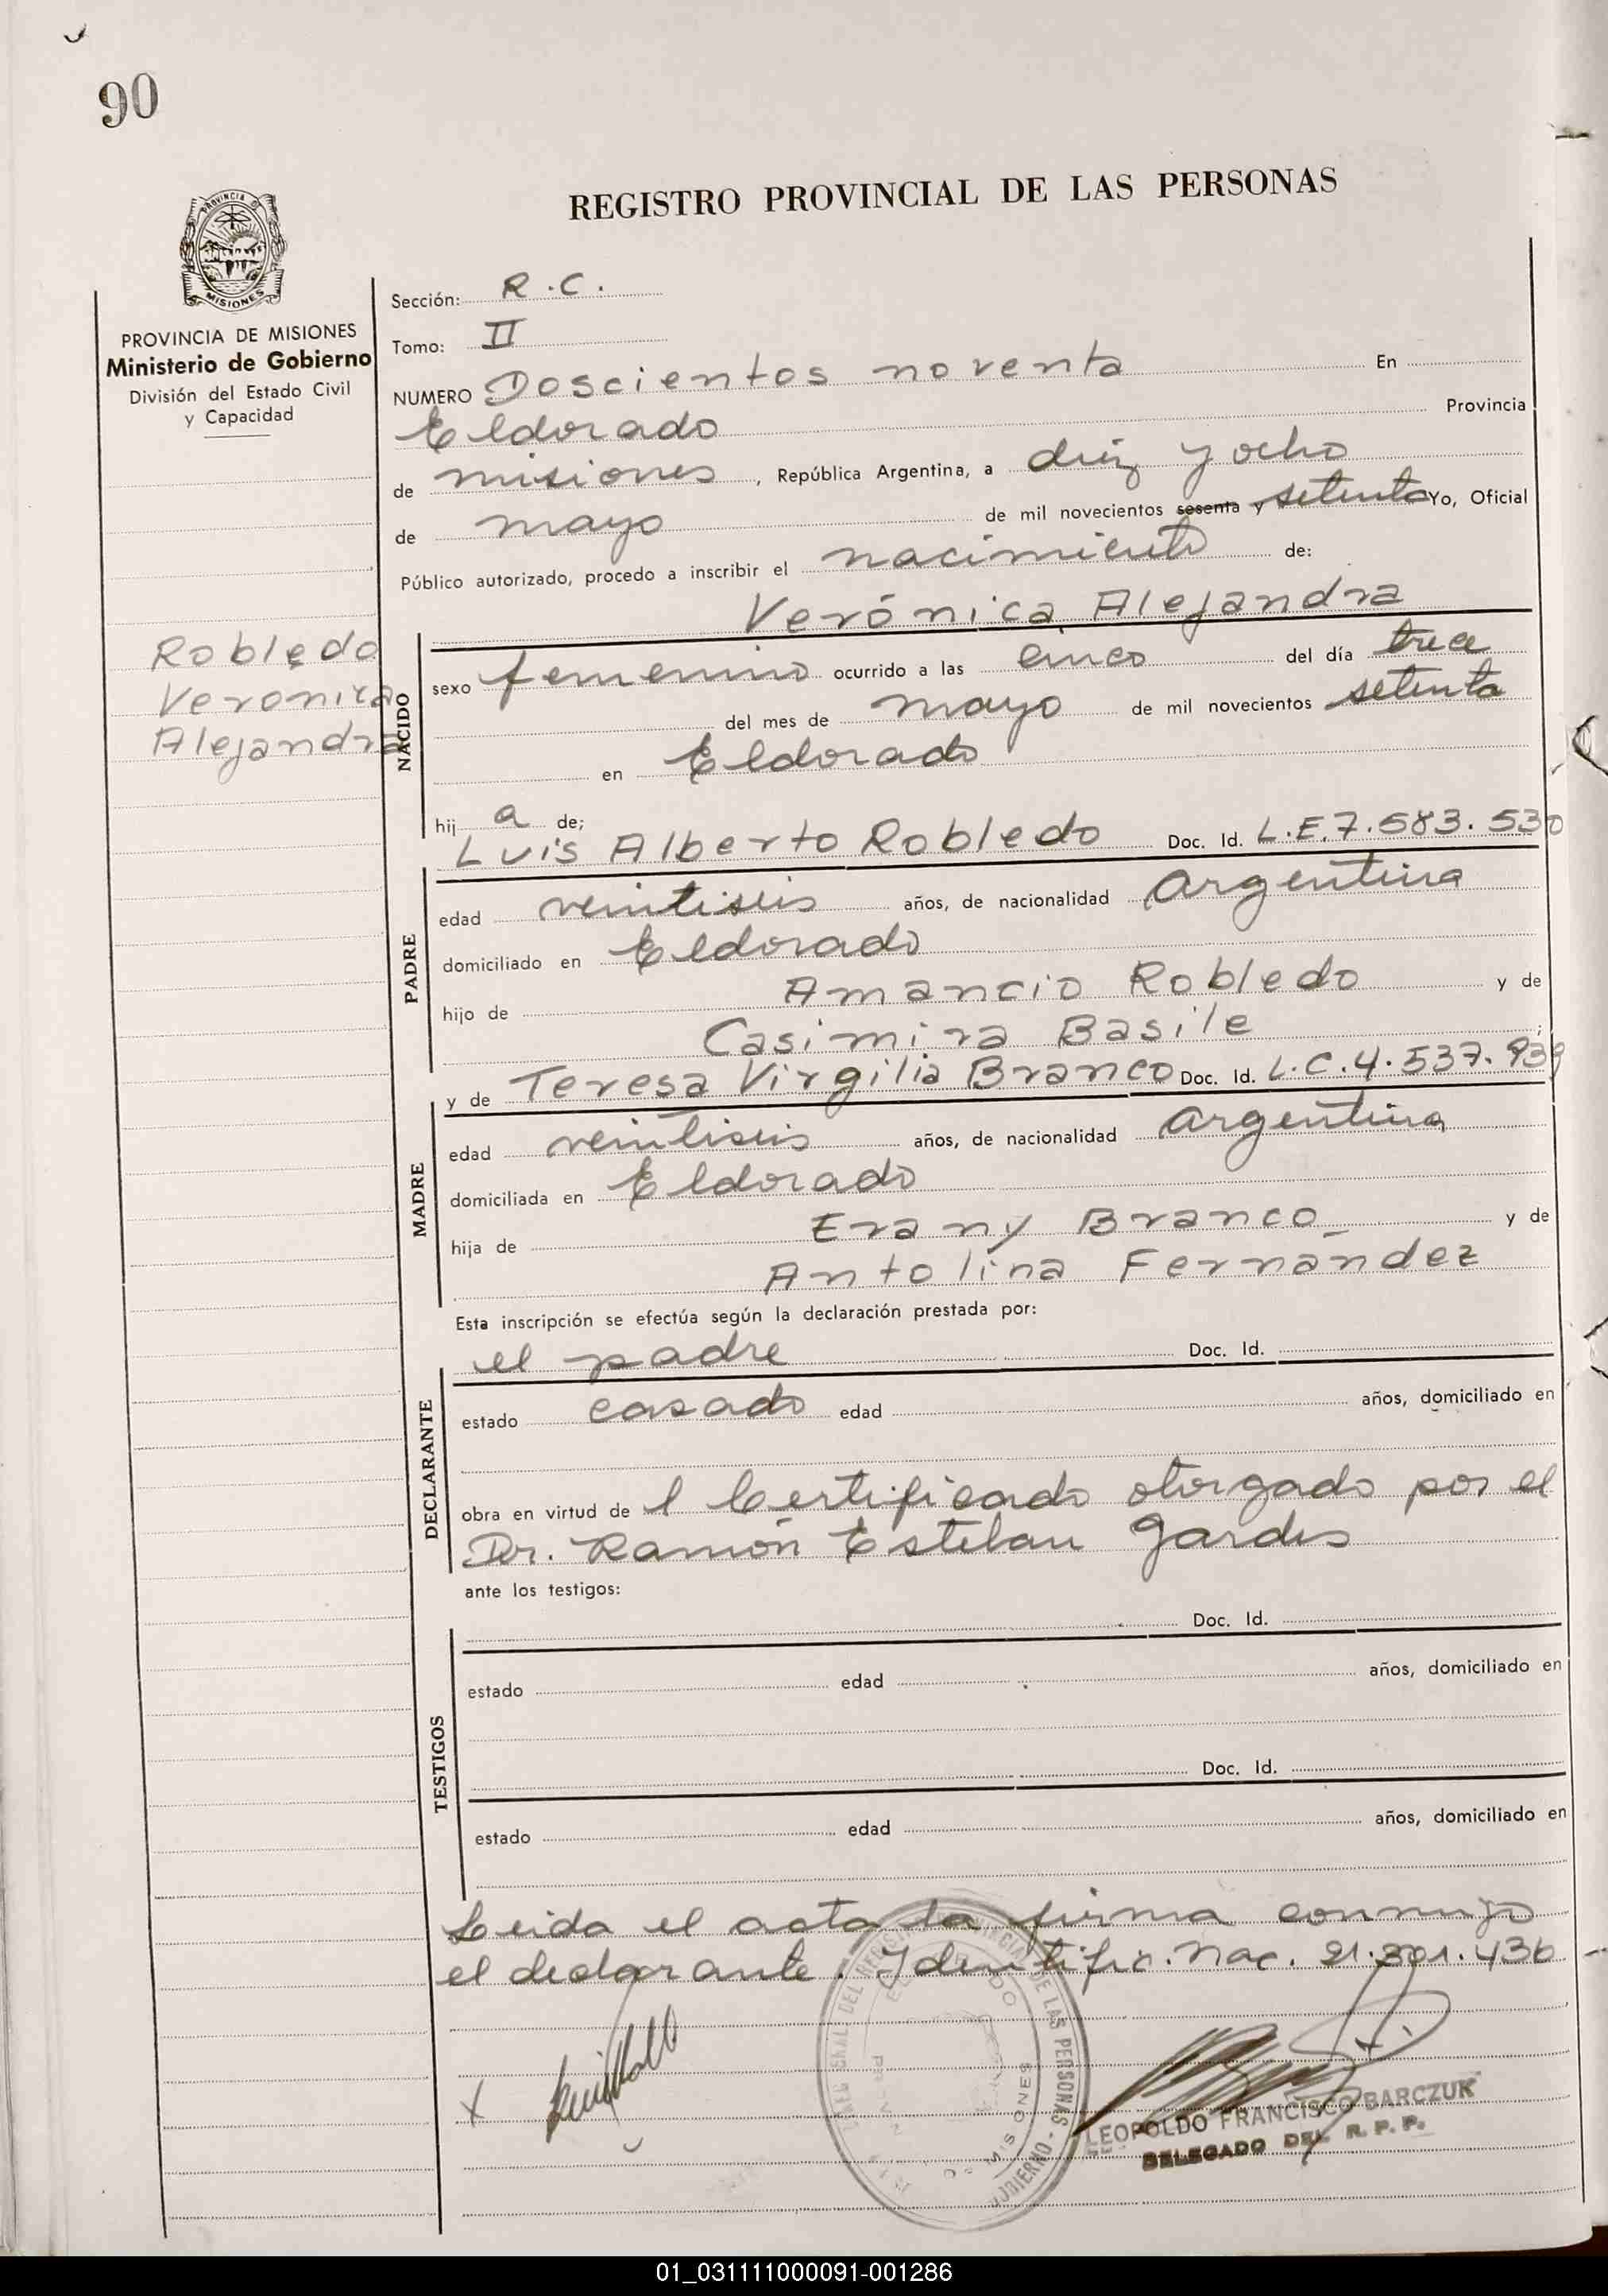 90
REGISTRO PROVINCIAL DE LAS PERSONAS
PROVINCIA DE MISIONES
Ministerio de Gobierno
División del Estado Civil
y Capacidad
Sección: R.C.
Tomo: II
NUMERO Doscientos noventa En
Eldorado Provincia
de misiones, República Argentina, a diez y ocho
de mayo de mil novecientos sesenta y setenta Yo, Oficial
Público autorizado, procedo a inscribir el nacimiento de:
Verónica Alejandra
Robledo
Veronica
Alejandra
NACIDO
sexo femenino ocurrido a las cinco del día trece
del mes de mayo de mil novecientos setenta
en Eldorado
hij a de;
Luis Alberto Robledo Doc. Id. L.E.7.583.530
PADRE
edad veintiseis años, de nacionalidad argentina
domiciliado en Eldorado
hijo de Amancio Robledo y de
Casimira Basile ;
y de Teresa Virgilia Branco Doc. Id. L.C.4.537.939
MADRE
edad veintiseis años, de nacionalidad argentina
domiciliada en Eldorado
hija de Erany Branco y de
Antolina Fernández
Esta inscripción se efectúa según la declaración prestada por:
el padre Doc. Id.
DECLARANTE
estado casado edad años, domiciliado en
obra en virtud de l Certificado otorgado por el
Dr. Ramón Esteban Gardes
ante los testigos:
Doc. Id.
TESTIGOS
estado edad años, domiciliado en
Doc. Id.
estado edad años, domiciliado en
Leida el acta la firma conmigo
el declarante. Identific. Nac. 21.301.436
X
LEOPOLDO FRANCISCO BARCZUK
DELEGADO DEL R.P.P.
01_031111000091-001286